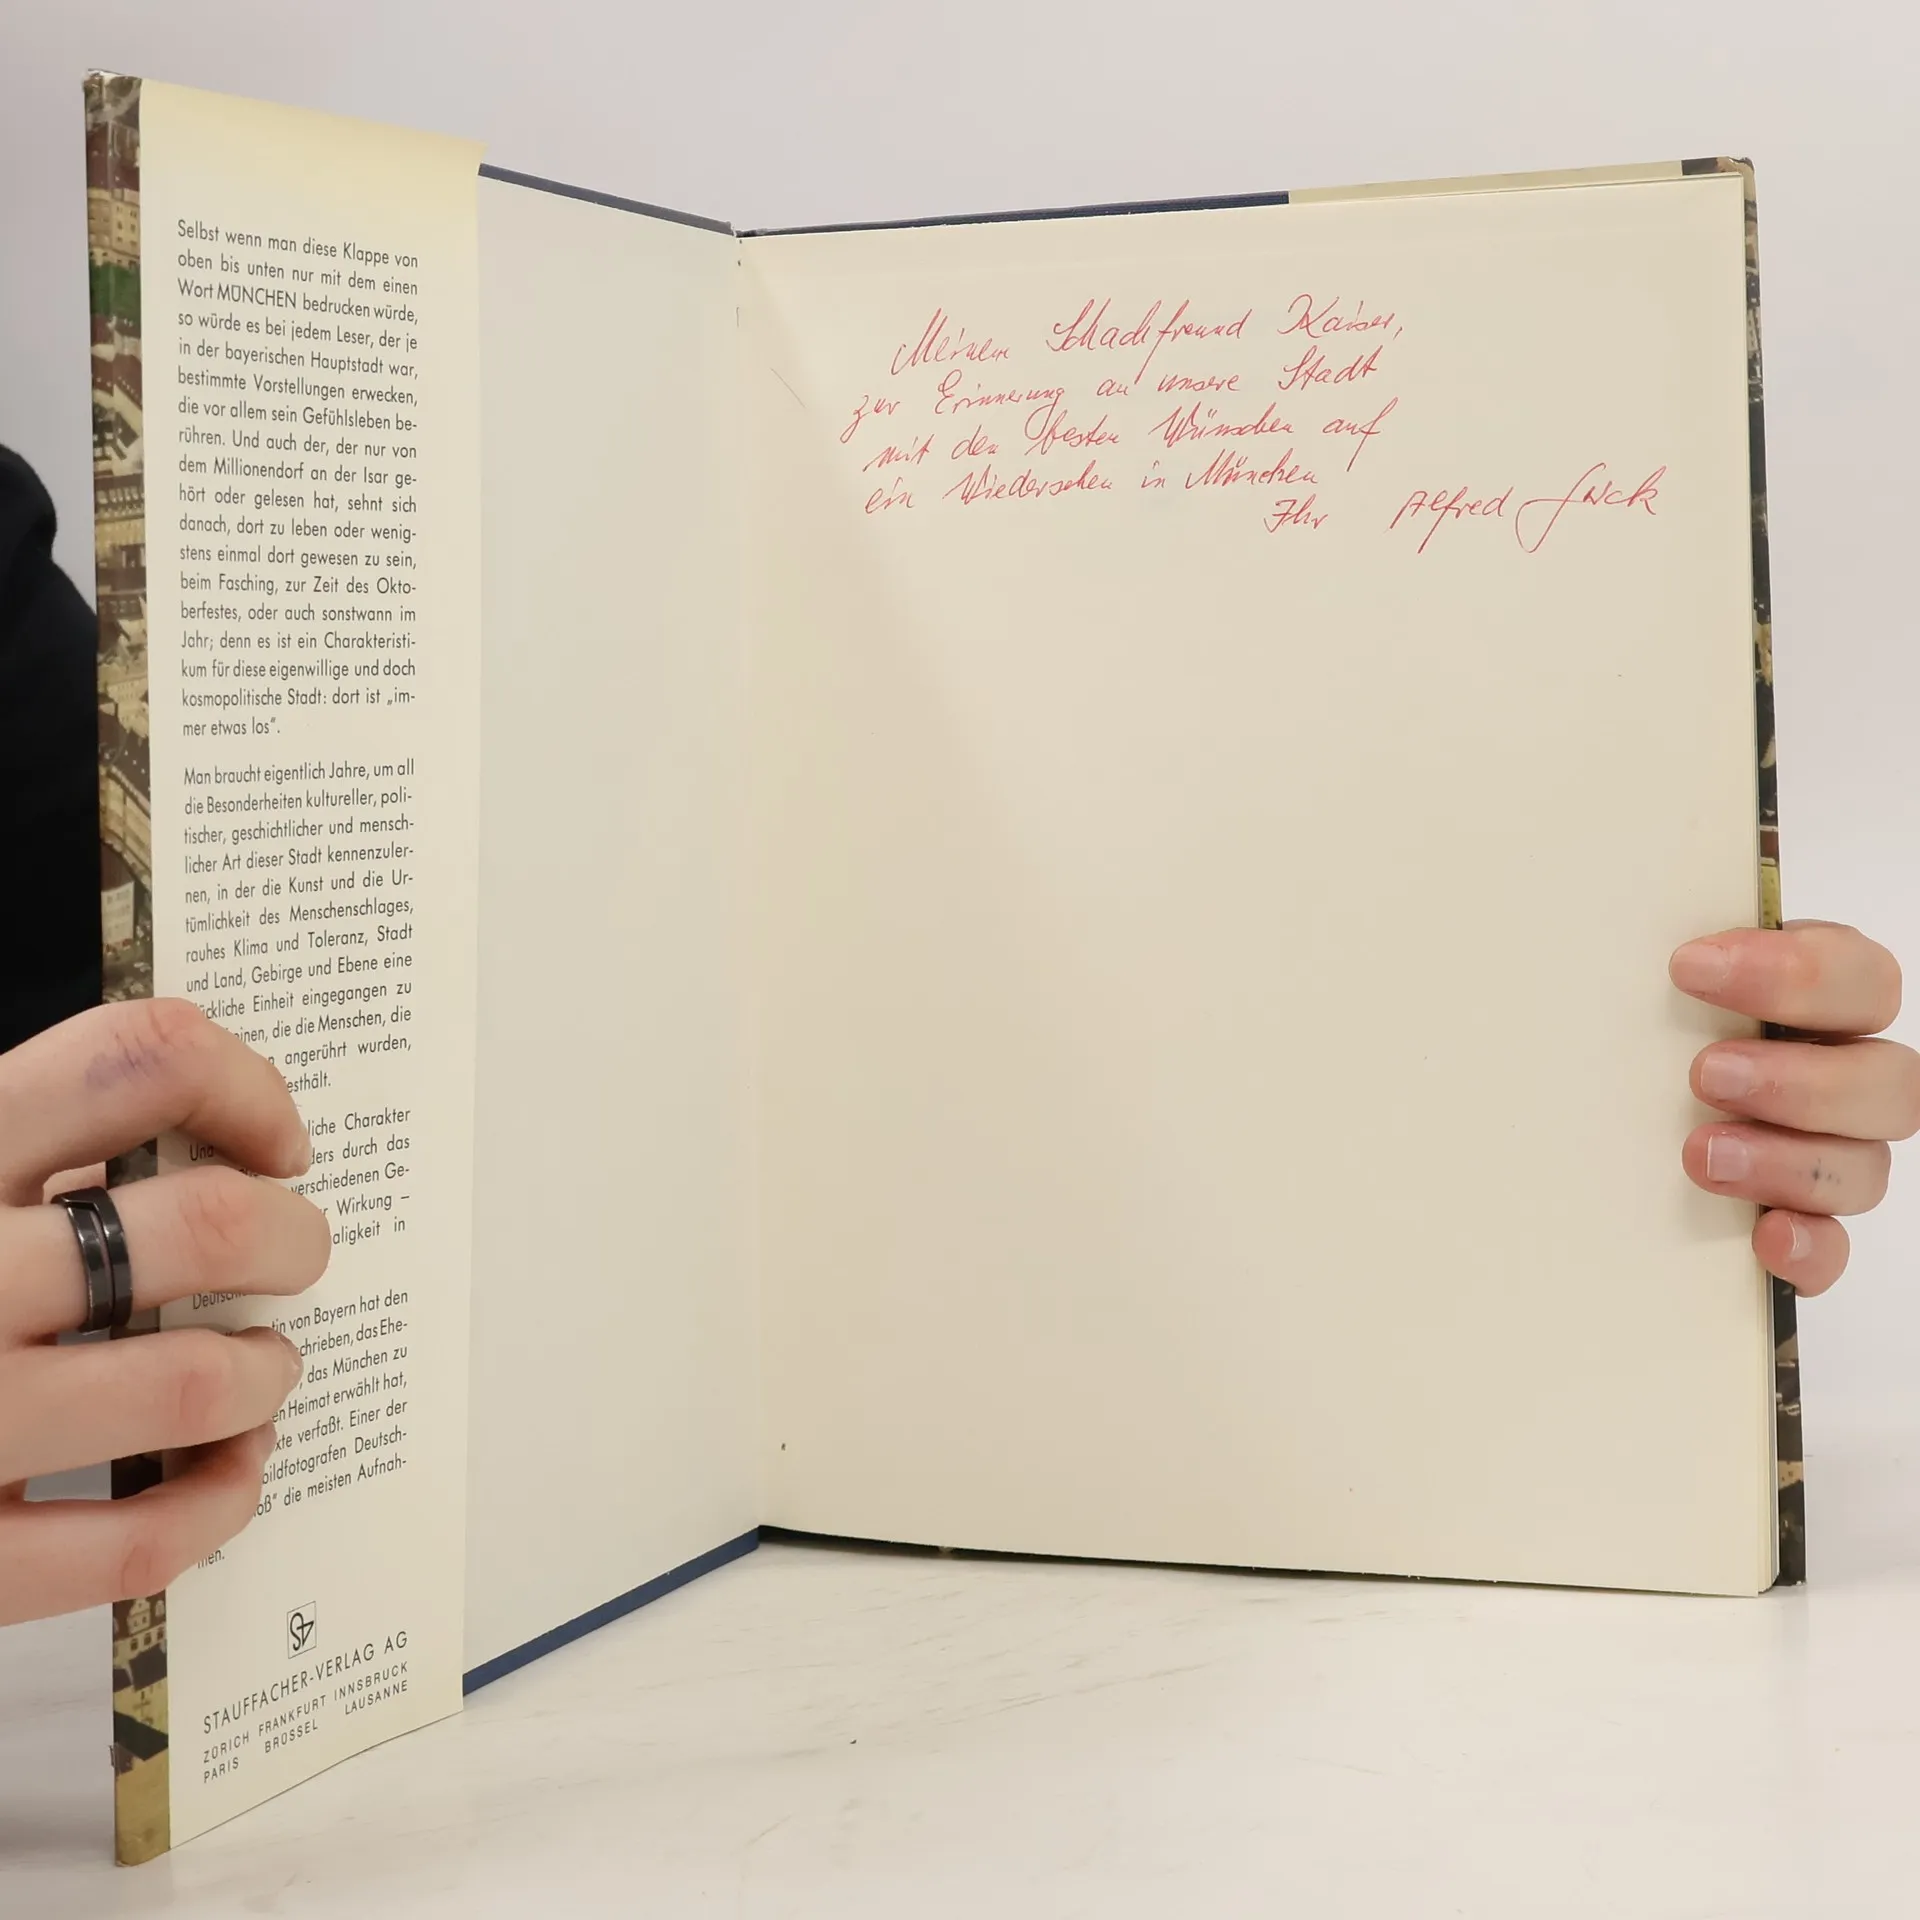 Selbst wenn man diese Klappe von
oben bis unten nur mit dem einen
Wort MÜNCHEN bedrucken würde,
so würde es bei jedem Leser, der je
in der bayerischen Hauptstadt war,
bestimmte Vorstellungen erwecken,
die vor allem sein Gefühlsleben be-
rühren. Und auch der, der nur von
dem Millionendorf an der Isar ge-
hört oder gelesen hat, sehnt sich
danach, dort zu leben oder wenig-
stens einmal dort gewesen zu sein,
beim Fasching, zur Zeit des Okto-
berfestes, oder auch sonstwann im
Jahr; denn es ist ein Charakteristi-
kum für diese eigenwillige und doch
kosmopolitische Stadt: dort ist „im-
mer etwas los“.
Man braucht eigentlich Jahre, um all
die Besonderheiten kultureller, poli-
tischer, geschichtlicher und mensch-
licher Art dieser Stadt kennenzuler-
nen, in der die Kunst und die Ur-
tümlichkeit des Menschenschlages,
rauhes Klima und Toleranz, Stadt
und Land, Gebirge und Ebene eine
ückliche Einheit eingegangen zu
einen, die die Menschen, die
angerührt wurden,
esthält.
Und liche Charakter
ders durch das
verschiedenen Ge-
r Wirkung –
aligkeit in
Deutschl
tin von Bayern hat den
chrieben, das Ehe-
, das München zu
en Heimat erwählt hat,
xte verfaßt. Einer der
bildfotografen Deutsch-
oß“ die meisten Aufnah-
men.
STAUFFACHER-VERLAG AG
ZÜRICH FRANKFURT INNSBRUCK
PARIS BRÜSSEL LAUSANNE
Meinem Schachfreund Kaiser,
zur Erinnerung an unsere Stadt
mit den besten Wünschen auf
ein Wiedersehen in München
Ihr Alfred